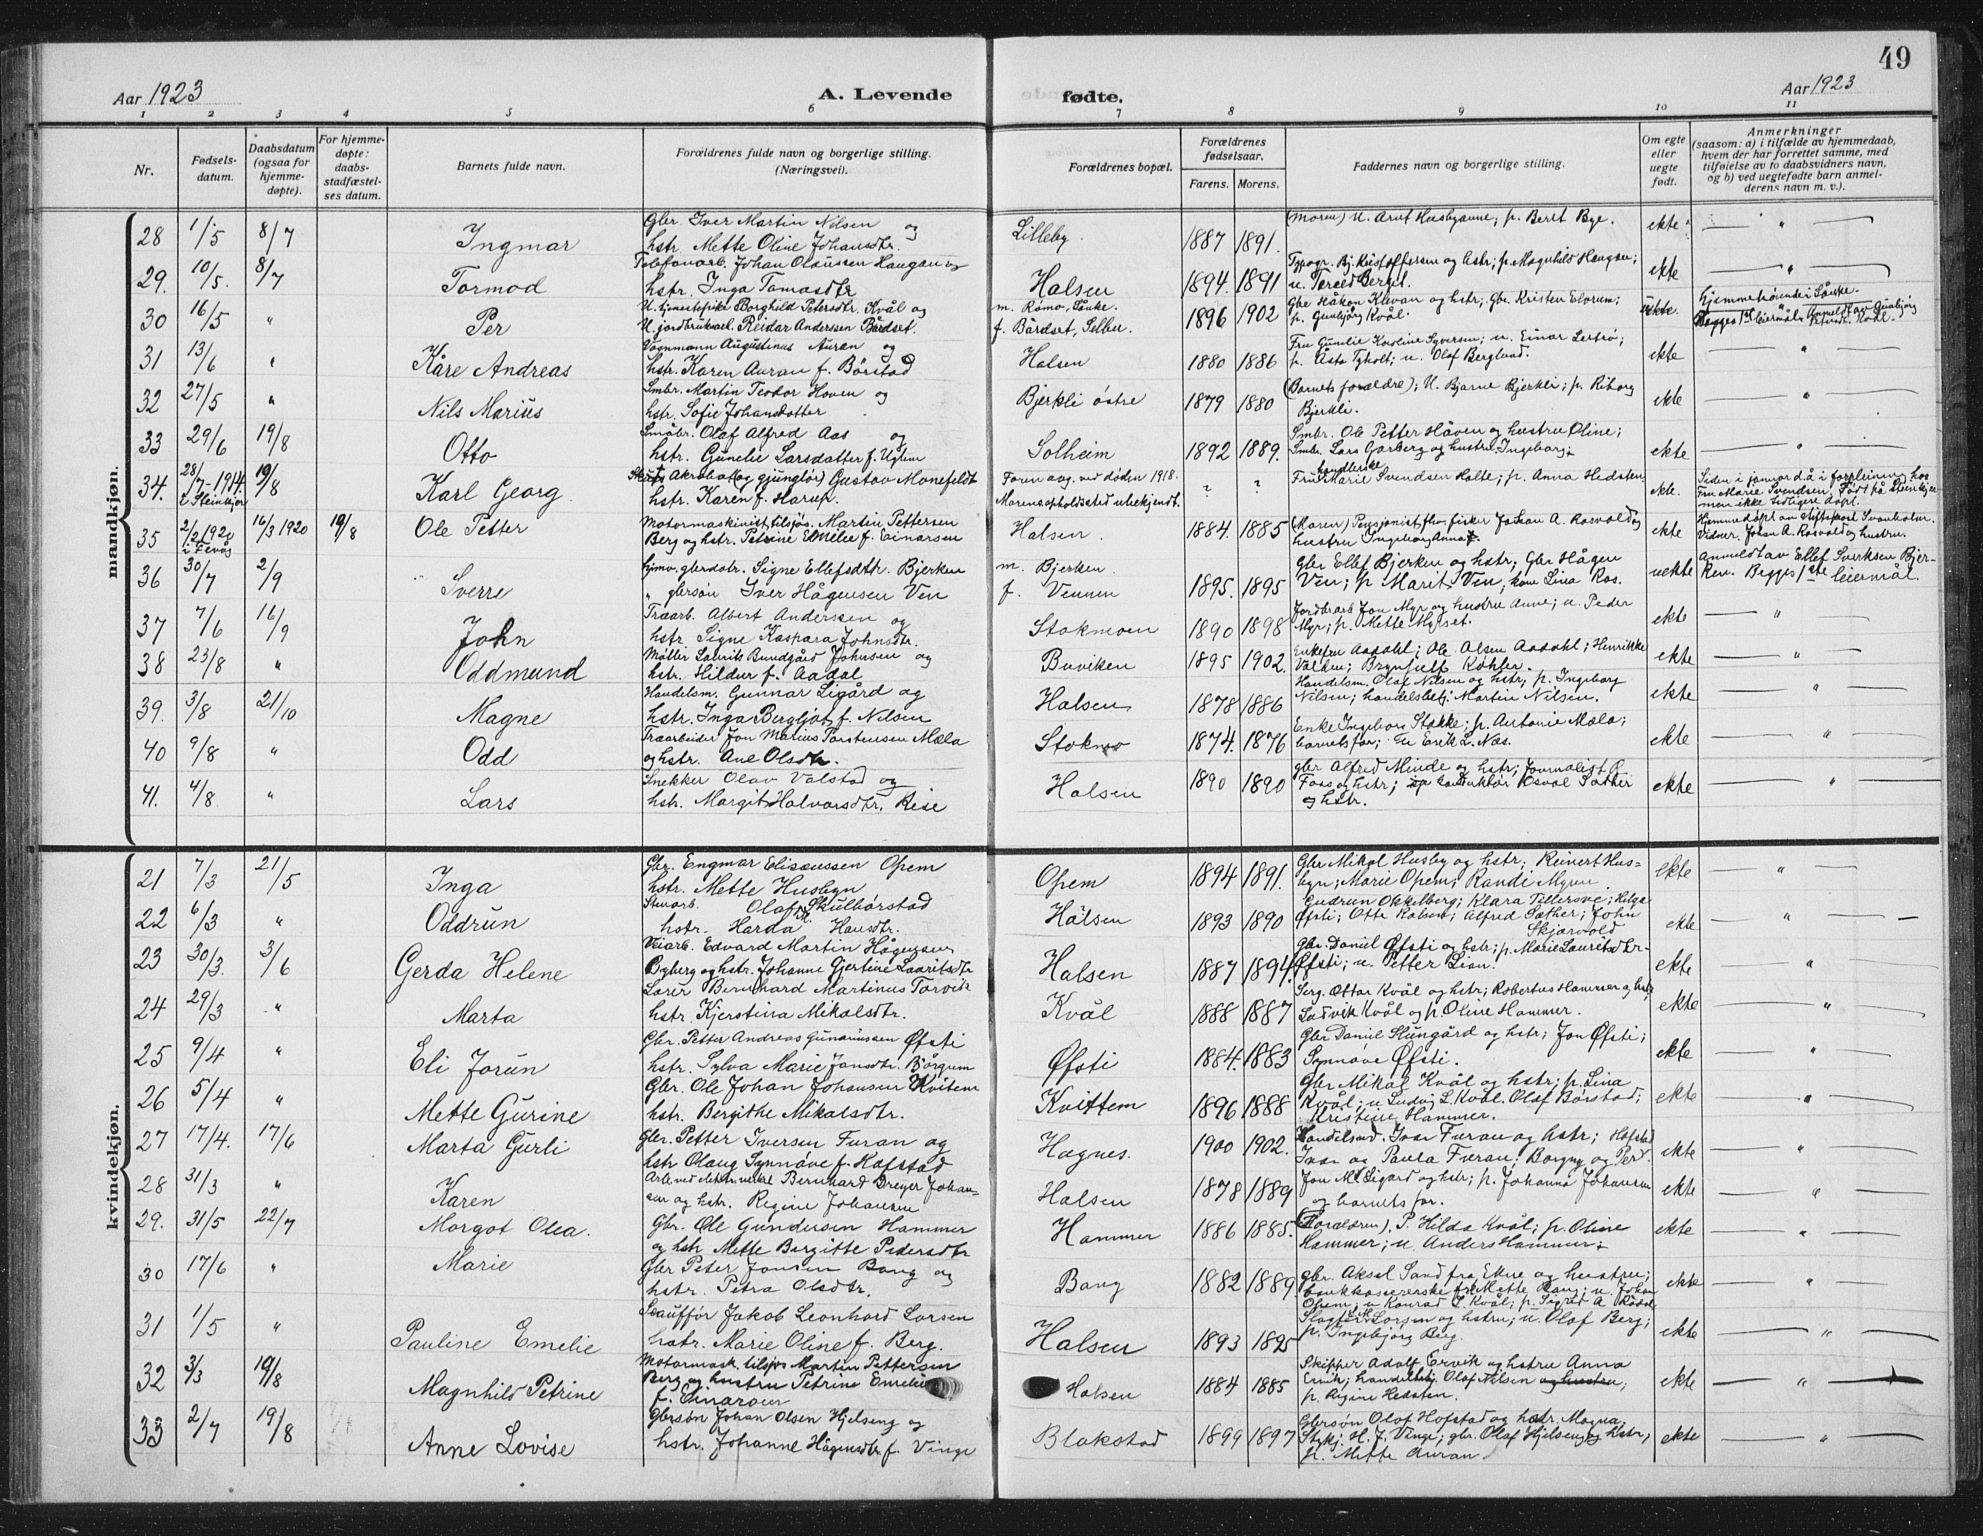 49
Aar 1923
A. Levende
fødte.
Aar 1923
1 2 3 4 5 6 7 8 9 10 11
Nr.
Fødsels-
datum.
Daabsdatum
(ogsaa for
hjemme-
døpte).
For hjemme-
døpte:
daabs-
stadfæstel-
ses datum.
Barnets fulde navn.
Forældrenes fulde navn og borgerlige stilling.
(Næringsvei).
Forældrenes bopæl.
Forældrenes
fødselsaar.
Farens. Morens.
Faddernes navn og borgerlige stilling.
Om egte
eller
uegte
født.
Anmerkninger
(saasom: a) i tilfælde av hjemmedaab,
hvem der har forrettet samme, med
tilføielse av to daabsvidners navn,
og b) ved uegtefødte barn anmel-
derens navn m. v.).
mandkjøn.
28 1/5 8/7 Ingmar
Gbr. Iver Martin Nilsen og
hstr. Mette Oline Johansdtr.
Lilleby. 1887 1891.
(Moren) U. Arnt Husbyaune; p. Berit Bye.
ekte "
29. 10/5. 8/7 Tormod
Telefonarb. Johan Olaussen Haugan og
hstr. Inga Tomasdtr
Halsen 1894. 1891
Typogr. Bj. Kristoffersen og hstr; p. Magnhild Haugen;
ekte "
30 16/5 " Per
U. tjenestepike Borghild Petersdtr. Kvål og
U. jordbruksarb. Reidar Anderssen Bårdset.
m. Rømo, Sånke.
f. Bårdset, Selbu.
1896 1902
Gbr Håkon Klevan og hstr; Gbr. Kristen Elvrum;
p. Gunbjørg Kvål.
uekte.
31 13/6 " Kåre Andreas
Vognmann Augustinus Auran og
hstr. Karen Auran f. Børstad
Halsen 1880 1886
Fru Gunelie Karoline Syversen; u. Einar Lertrø;
p. Åsta Tyholt; u. Olaf Berglund.
ekte "
32 27/5 " Nils Marius
Smbr. Martin Teodor Hoven og
hstr. Sofie Johansdatter
Bjerkli østre 1879 1880
(Barnets forældre); U. Bjarne Bjerkli; p. Riborg
Bjerkli.
ekte "
33 29/6 19/8 Otto
Småbr. Olaf Alfred Aas og
hstr. Gunelie Larsdatter f. Uglem
Solheim 1892 1889.
Smbr. Ole Petter Håven og hustru Oline;
Smbr. Lars Garberg og hustru Ingeborg.
ekte "
34. 28/7-1914 19/8 Karl Georg
i Steinkjer
Akrobat (og gjunglør) Gustav Monefeldt
hstr. Karen f. Harup.
Faren avg. ved døden 1918.
Morens opholdssted ubekjendt.
? ?
handlerske
Fru Marie Svendsen Halte; p. Anna Hedsten
ekte.
Siden i januar d.å. i forpleining hos
Fru Marie Svendsen. Født på Steinkjer
men ikke tidligere døpt.
35 2/2 1920 16/3 1920 19/8 Ole Petter
Motormaskinist, tilsjøs. Martin Pettersen
Berg og hstr. Petrine Emelie f. Einarsen
Halsen. 1884. 1885
(Moren) Pensjonist fhv. fisker Johan A. Rosvold og
hustru Ingeborg Anna.
ekte
Hjemmedøpt av stiftsprost Svanholm.
Vidner: Johan A. Rosvold og hustru.
36 30/7 2/9 Sverre
hjmv. gbrdatr. Signe Ellefsdtr. Bjerken
" gbrsøn Iver Hågensen Ven
m. Bjerken.
f. Vennen
1895. 1895
Gbr Ellef Bjerken og hstr; Gbr Hågen
Ven; p. Marit Ven; Lina Ros.
uekte
Anmeldt av Ellef Sverksen Bjer-
ken. Begges 1ste leiermål.
37 7/6 16/9 John
Træarb. Albert Anderssen og
hstr. Signe Kaspara Johnsdtr.
Stokmoen 1890 1898
Jordbrarb. Jon Myr og hustru Anne; u. Peder
Myr; p. Mette Myrset.
ekte "
38 23/8 " Oddmund
Møller Laurits Bundgård Johnsen og
hstr. Hildur f. Aadal
Buviken 1895 1902.
Enkefru Aadahl; Ole Olsen Aadahl; Henrikke
Valden; Brynjulf Køhler.
ekte "
39. 3/8 21/10 Magne
Handelsm. Gunnar Ligård og
hstr. Inga Bergljot f. Nilsen
Halsen 1878 1886
Handelsm. Olaf Nilsen og hstr; p. Ingeborg
Nilsen; handelsbetj. Martin Nilsen.
ekte "
40 9/8 " Odd
Træarbeider Jon Marius Torstensen Mæla
og hstr. Ane Olsdtr.
Stokmo 1874. 1876
Enke Ingeborg Stokke; p. Antonie Mæla;
barnets far; Erik L. Næs.
ekte "
41. 4/8. " Lars
Snekker Olav Valstad og
hstr. Margit Halvorsdtr. Reise
Halsen 1890 1890
gbr Alfred Minde og hstr; Journalist R.
Foss og hstr; konduktør Osvol Sæther
og hstr.
ekte "
kvindekjøn.
21 7/3 21/5 Inga
Gbr. Engmar Eliseussen Opem
hstr. Mette Husbyn
Opem 1894 1891.
Gbr Mikal Husby og hstr; Reinert Hus-
byn; Marie Opem; Randi Myrun.
ekte "
22 6/3 " Oddrun
Stenarb. Olaf Skulbørstad
hstr. Harda M. Hansdtr.
Halsen 1893 1890
Gudrun Okkelberg; Klara Tillersve; Helga
Øfsti; Otte Rolsen; Alfred Sæther; John
Skjærvold
ekte "
23 30/3. 3/6 Gerda Helene
Veiarb. Edvard Martin Hågensen
Byberg og hstr. Johanne Gjertine Lauritsdtr
Halsen 1887 1894.
Gbr. Daniel Øfsti og hstr; p. Marie Lauritsdtr-
Øfsti; u. Petter Lian.
ekte "
24 29/3 " Marta
Lærer Bernhard Martinus Torvik
hstr. Kjerstina Mikalsdtr.
Kvål 1888 1887
Serg. Ottar Kvål og hstr; Robertus Hammer og hstr;
Ludvik Kvål og p. Oline Hammer.
ekte "
25 9/4 " Eli Jorun
Gbr. Petter Andreas Gunnarussen Øfsti
hstr. Sylva Marie Jonsdtr. Børgum
Øfsti 1884. 1883
Gbr Daniel Stungård og hstr; Jon Øfsti;
Synnøve Øfsti.
ekte "
26 5/4 " Mette Gurine
Gbr. Ole Johan Johansen Kvitem
hstr. Bergithe Mikalsdtr.
Kvittem 1896 1888
Gbr Mikal Kvål og hstr; p. Lina
Kvål; u. Ludvig L. Kvål. Olaf Børstad;
Kristine Hammer.
ekte "
27 17/4. 17/6 Marta Gurli
Gbr. Petter Iversen Furan og
hstr Olaug Synnøve f. Hofstad
Hognes. 1900 1902.
Handelsmd. Ivar Furan og hstr; Hofstad
Ivar og Paula Furan; Borgny og Per
ekte "
28 31/3 " Karen
Bernhard Dreyer Johan-
sen og hstr. Regine Johansen
Halsen 1878 1889
Jon M. Ligard og hstr; p. Johanna Johansen
og barnets far.
ekte "
29. 31/5 22/7 Margot Olea.
Gbr. Ole Gundersen Hammer
og hstr Mette Bergitte Pedersdtr
Hammer 1886 1885.
(Forældren), P. Hilda Kvål; p. Oline
Hammer; u. Anders Hammer;
ekte "
30 17/6 " Marie
Gbr Peter Jonsen Bang og
hstr. Petra Olsdtr.
Bang 1882 1889
gbr. Aksel Sand fra Etne og hustru;
bankkassererske frk Mette Bang; u. Johan
Opem; u Konrad L. Kvål; p. Sigrid A. Rødde
ekte "
31 1/5 " Pauline Emelie
Schauffør Jakob Leonhard Larsen
hstr. Marie Oline f. Berg.
Halsen 1893 1895
Slagter Larsen og hstru; u. Olaf Berg;
p. Ingebjørg Berg.
ekte "
32 3/3 19/8 Magnhild Petrine
Motormask. tilsjøs Martin Pettersen
Berg og hustru Petrine Emelie
f. Einarsen
Halsen 1884 1885
Skipper Adolf Ervik og hstru Anna
Ervik; handelsbetj. Olaf Nilsen og hustru;
p. Regine Hedsten.
ekte "
33 2/7 19/8 Anne Lovise
Gbrsøn Johan Olsen Hjelseng og
hstr. Johanne Hågensdtr. f. Vinge
Blakstad 1899 1897
Gbrsøn Olaf Hofstad og hstr. Magna
Stykj. H. J. Vinge; gbr. Olaf Hjelseng og hstr;
p. Mette Auran.
ekte "